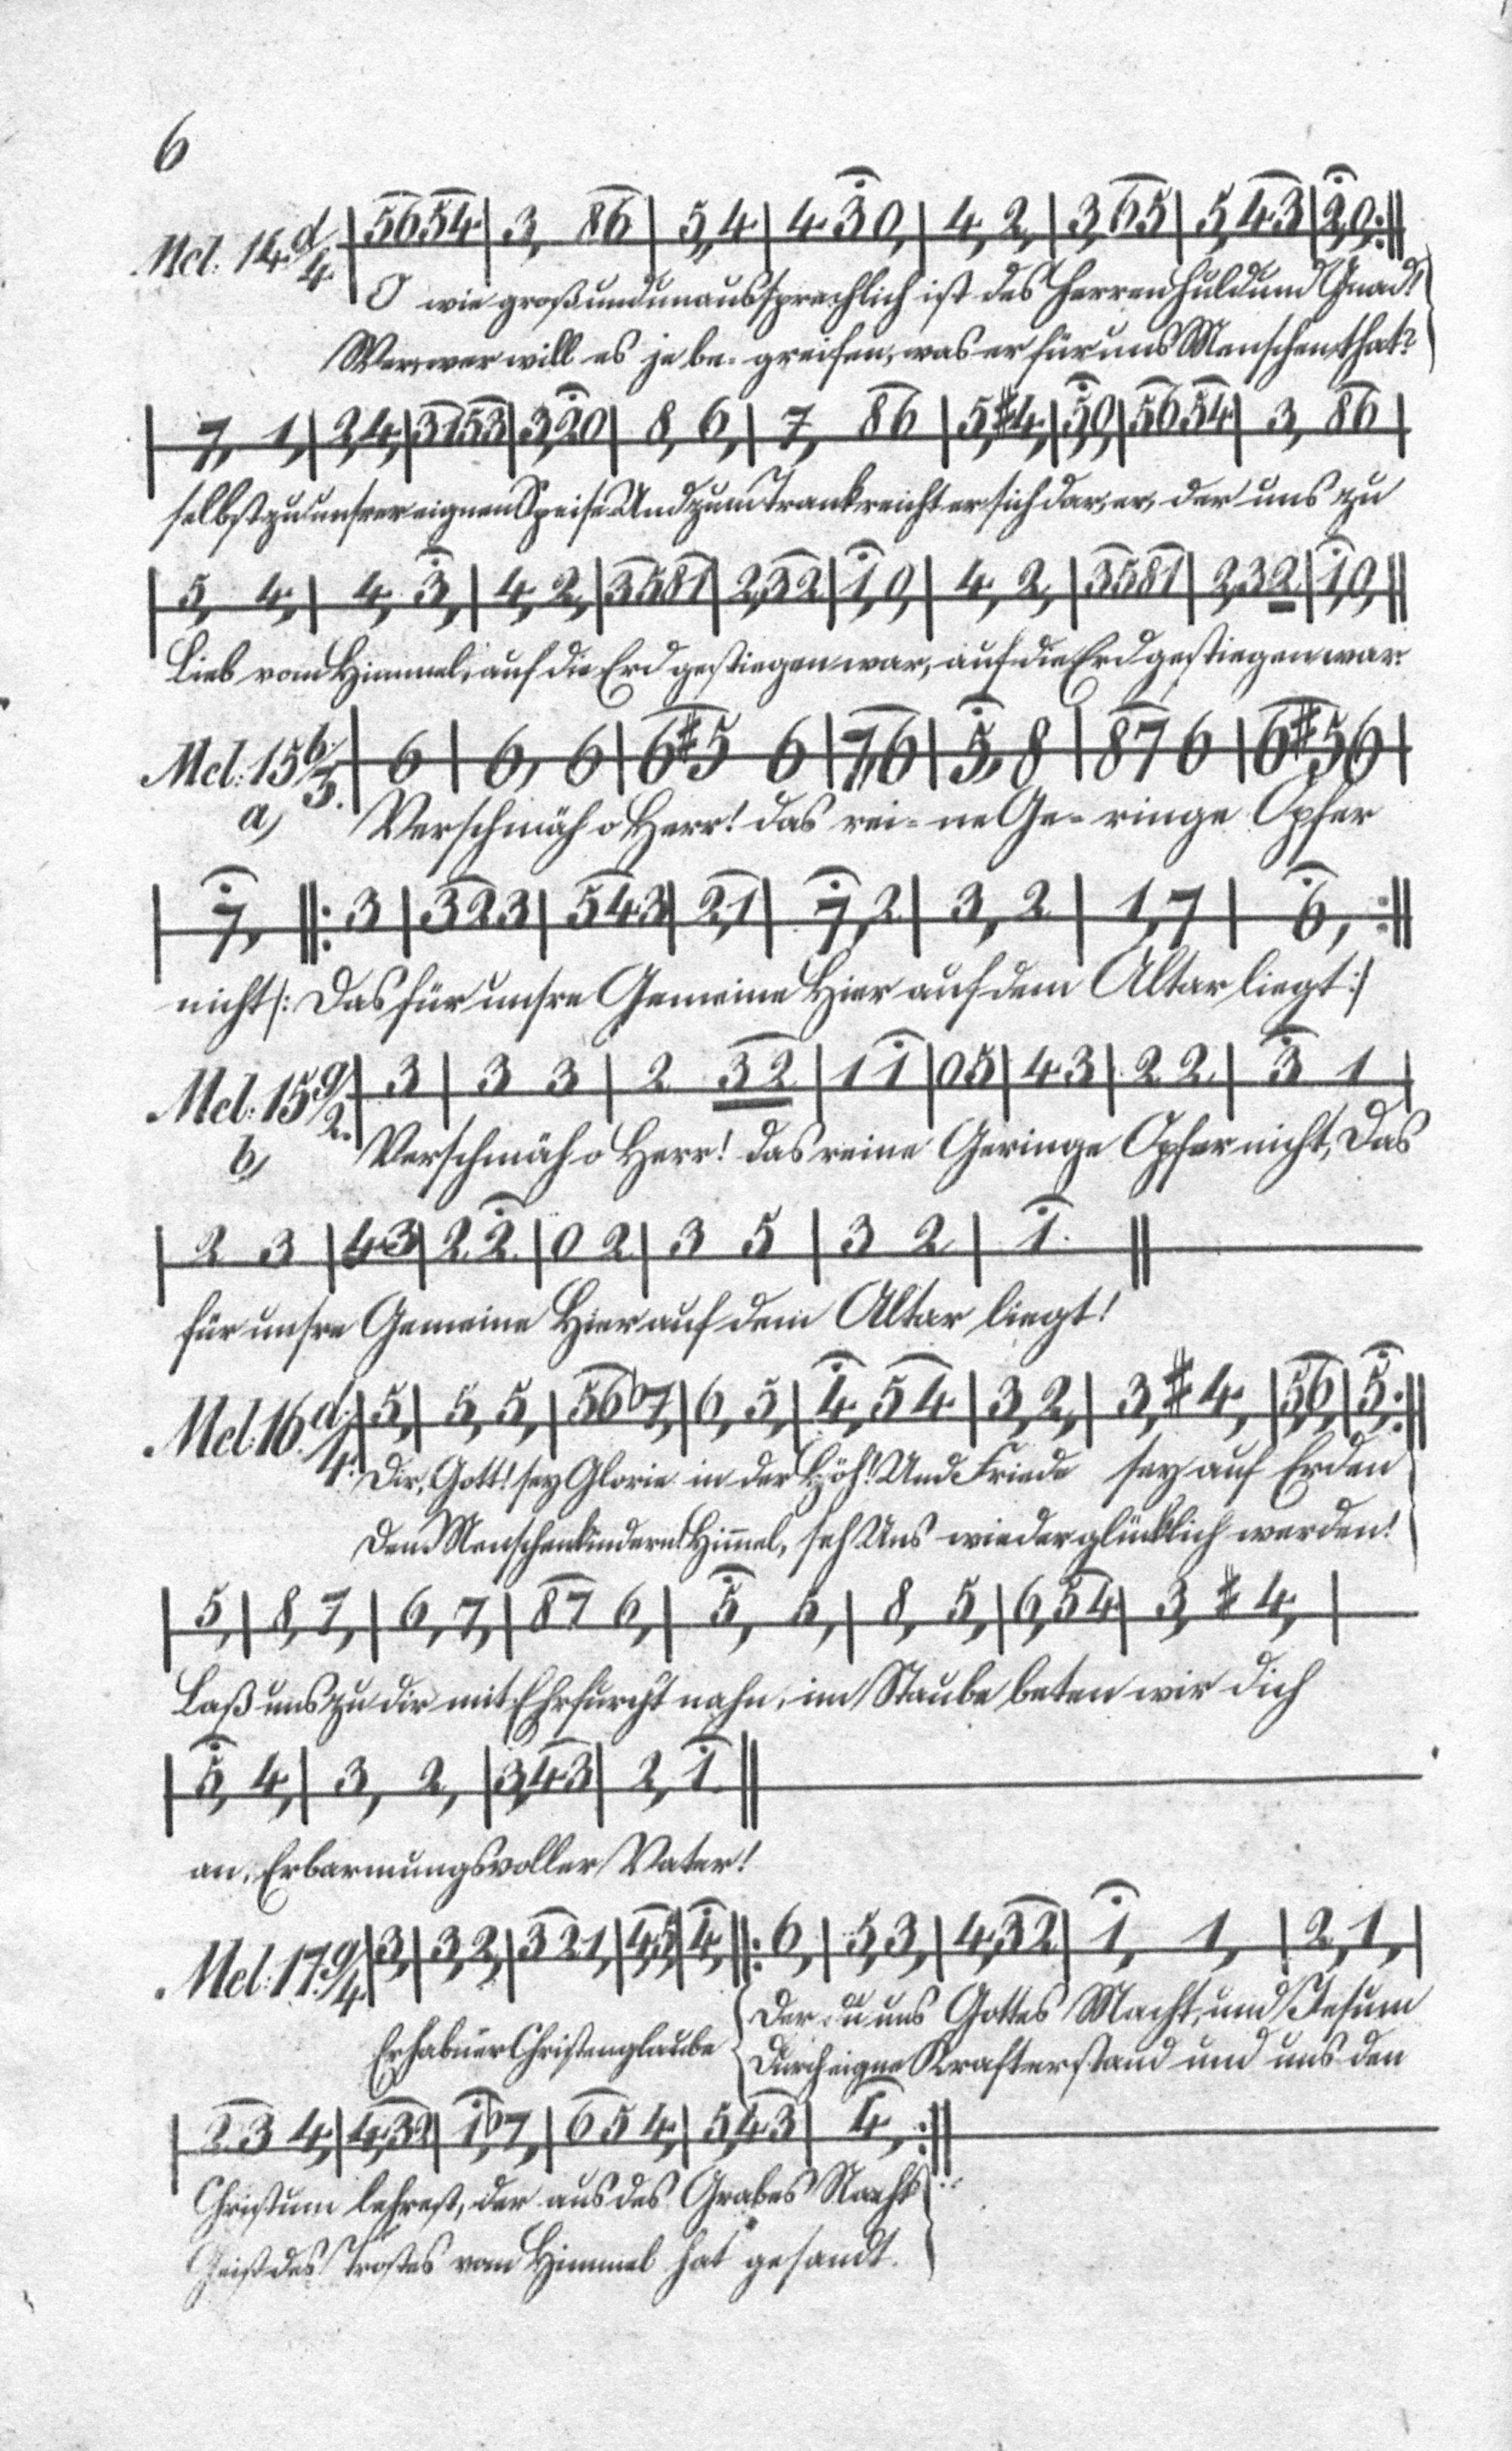 6
Mel: 14. d/4. | 5654 | 3, 86 | 5, 4 | 4 3 0, | 4, 2, | 3, 65 | 5, 43 | 2, 0, :||
O wie groß und unaussprechlich ist des Herren Huld und Gnad!
Wer, wer will es je be- greifen, was er für uns Menschen that?
| 7, 1, | 2, 4, | 3153 | 3, 20 | 8, 6, | 7, 86 | 5, #4, | 5, 0, | 5654 | 3, 86 |
selbst zu unsrer eignen Speise Und zum Trank reicht er sich dar, er, der uns zu
| 5, 4, | 4, 3, | 4, 2, | 3581 | 2, 32 | 1, 0, | 4, 2, | 3581 | 2, 32 | 1, 0, ||
Lieb vom Himmel, auf die Erd gestiegen war, auf die Erd gestiegen war.
Mel: 15 b/3. | 6 | 6, 6 | 6#5 6 | 7, 6 | 5, 8 | 87 6 | 6#56 |
a) Verschmäh o Herr! das rei- ne Ge- ringe Opfer
| 7, ||: 3 | 323 | 543 | 2, 1 | 7, 2 | 3, 2 | 1, 7 | 6, :||
nicht |: Das für unsre Gemeine Hier auf dem Altar liegt :|
Mel: 15 g/2. | 3 | 3 3 | 2 32 | 1 1 | 0 5 | 4 3 | 2 2 | 3 1 |
b) Verschmäh o Herr! das reine Geringe Opfer nicht, Das
| 2 3 | 4 3 | 2 2 | 0 2 | 3 5 | 3 2 | 1. ||
für unsre Gemeine Hier auf dem Altar liegt!
Mel: 16. d/4. | 5, | 5, 5, | 56b7, | 6, 5, | 4, 54 | 3, 2, | 3, #4, | 5, 6, | 5, :||
Dir, Gott! sey Glorie in der Höh! Und Friede sey auf Erden
Den Menschenkindern! Himel, seh Uns wieder glücklich werden!
| 5, | 8, 7, | 6, 7, | 87 6, | 5, 5, | 8, 5, | 6, 54 | 3, #4, |
Laß uns zu dir mit Ehrfurcht nahn, im Staube beten wir dich
| 5, 4, | 3, 2, | 3, 43 | 2, 1. ||
an, Erbarmungsvoller Vater!
Mel: 17. g/4. | 3, | 3, 2, | 321, | 4, 5, | 4, ||: 6, | 5, 3, | 4, 32 | 1, 1, | 2, 1, |
Der du uns Gottes Macht, und Jesum
Erhabner Christenglaube
Durch eigne Kraft erstand und uns den
| 23 4, | 4, 32 | 1, b7, | 65 4, | 5, 43 | 4, :||
Christum lehrest, der aus des Grabes Nacht
Geist des Trostes vom Himmel hat gesandt.